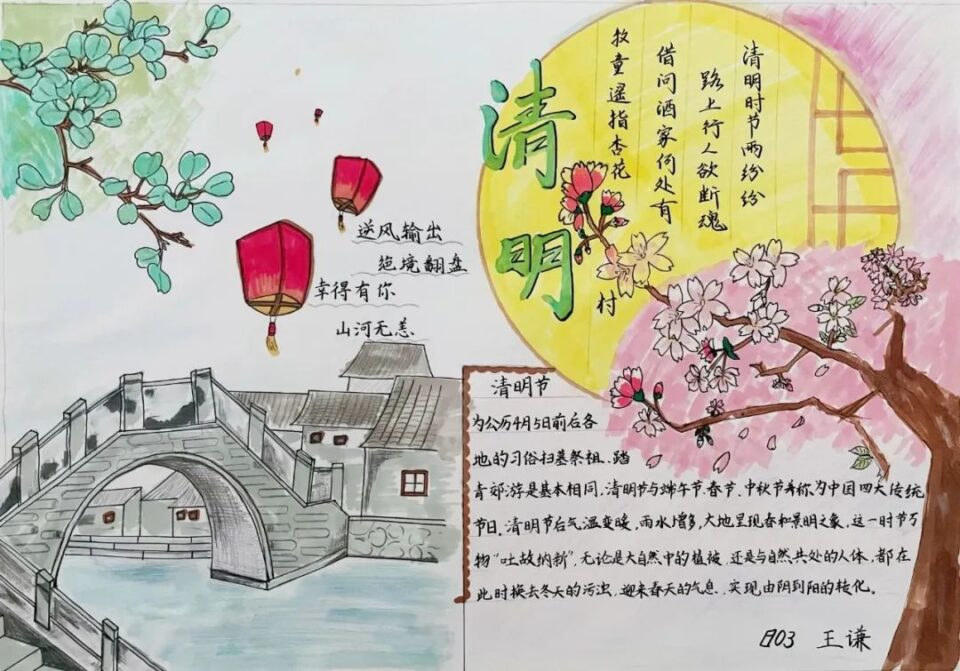 清明
清明时节雨纷纷
路上行人欲断魂
借问酒家何处有
牧童遥指杏花
村
逆风输出
绝境翻盘
幸得有你
山河无恙
清明节
为公历4月5日前后各
地的习俗扫墓祭祖、踏
青郊游是基本相同,清明节与端午节、春节、中秋节并称为中国四大传统
节日。清明节后气温变暖,雨水增多,大地呈现春和景明之象,这一时节万
物“吐故纳新”,无论是大自然中的植被,还是与自然共处的人体,都在
此时换去冬天的污浊,迎来春天的气息,实现由阴到阳的转化。
日03 王谦